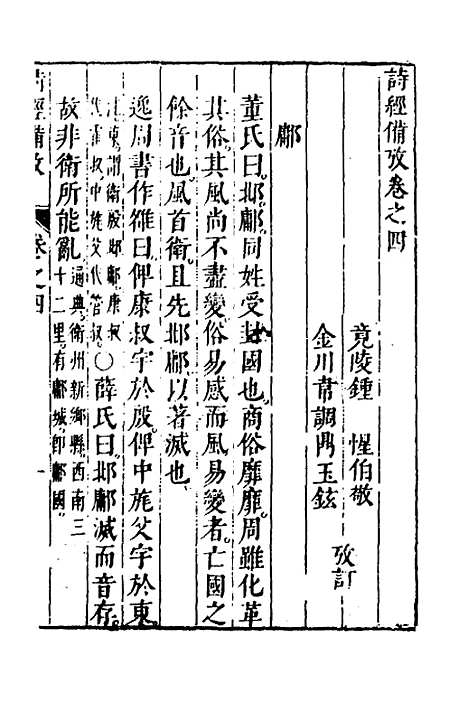 詩經備攷卷之四
竟陵鍾惺伯敬
金川韋調鼎玉鉉
攷訂
鄘
董氏曰邶鄘同姓受封國也商俗靡靡周雖化革
其俗其風尚不盡變俗易感而風易變者亡國之
餘音也風首衛且先邶鄘以著滅也
逸周書作雒曰俾康叔宇於殷俾中旄父宇於東
注東謂衛殷邶鄘康叔
代霍叔中旄父代管叔○薛氏曰邶鄘滅而音存
故非衛所能亂通典衛州新鄉縣西南三
十二里有鄘城即鄘國
詩經備攷
卷之四
一